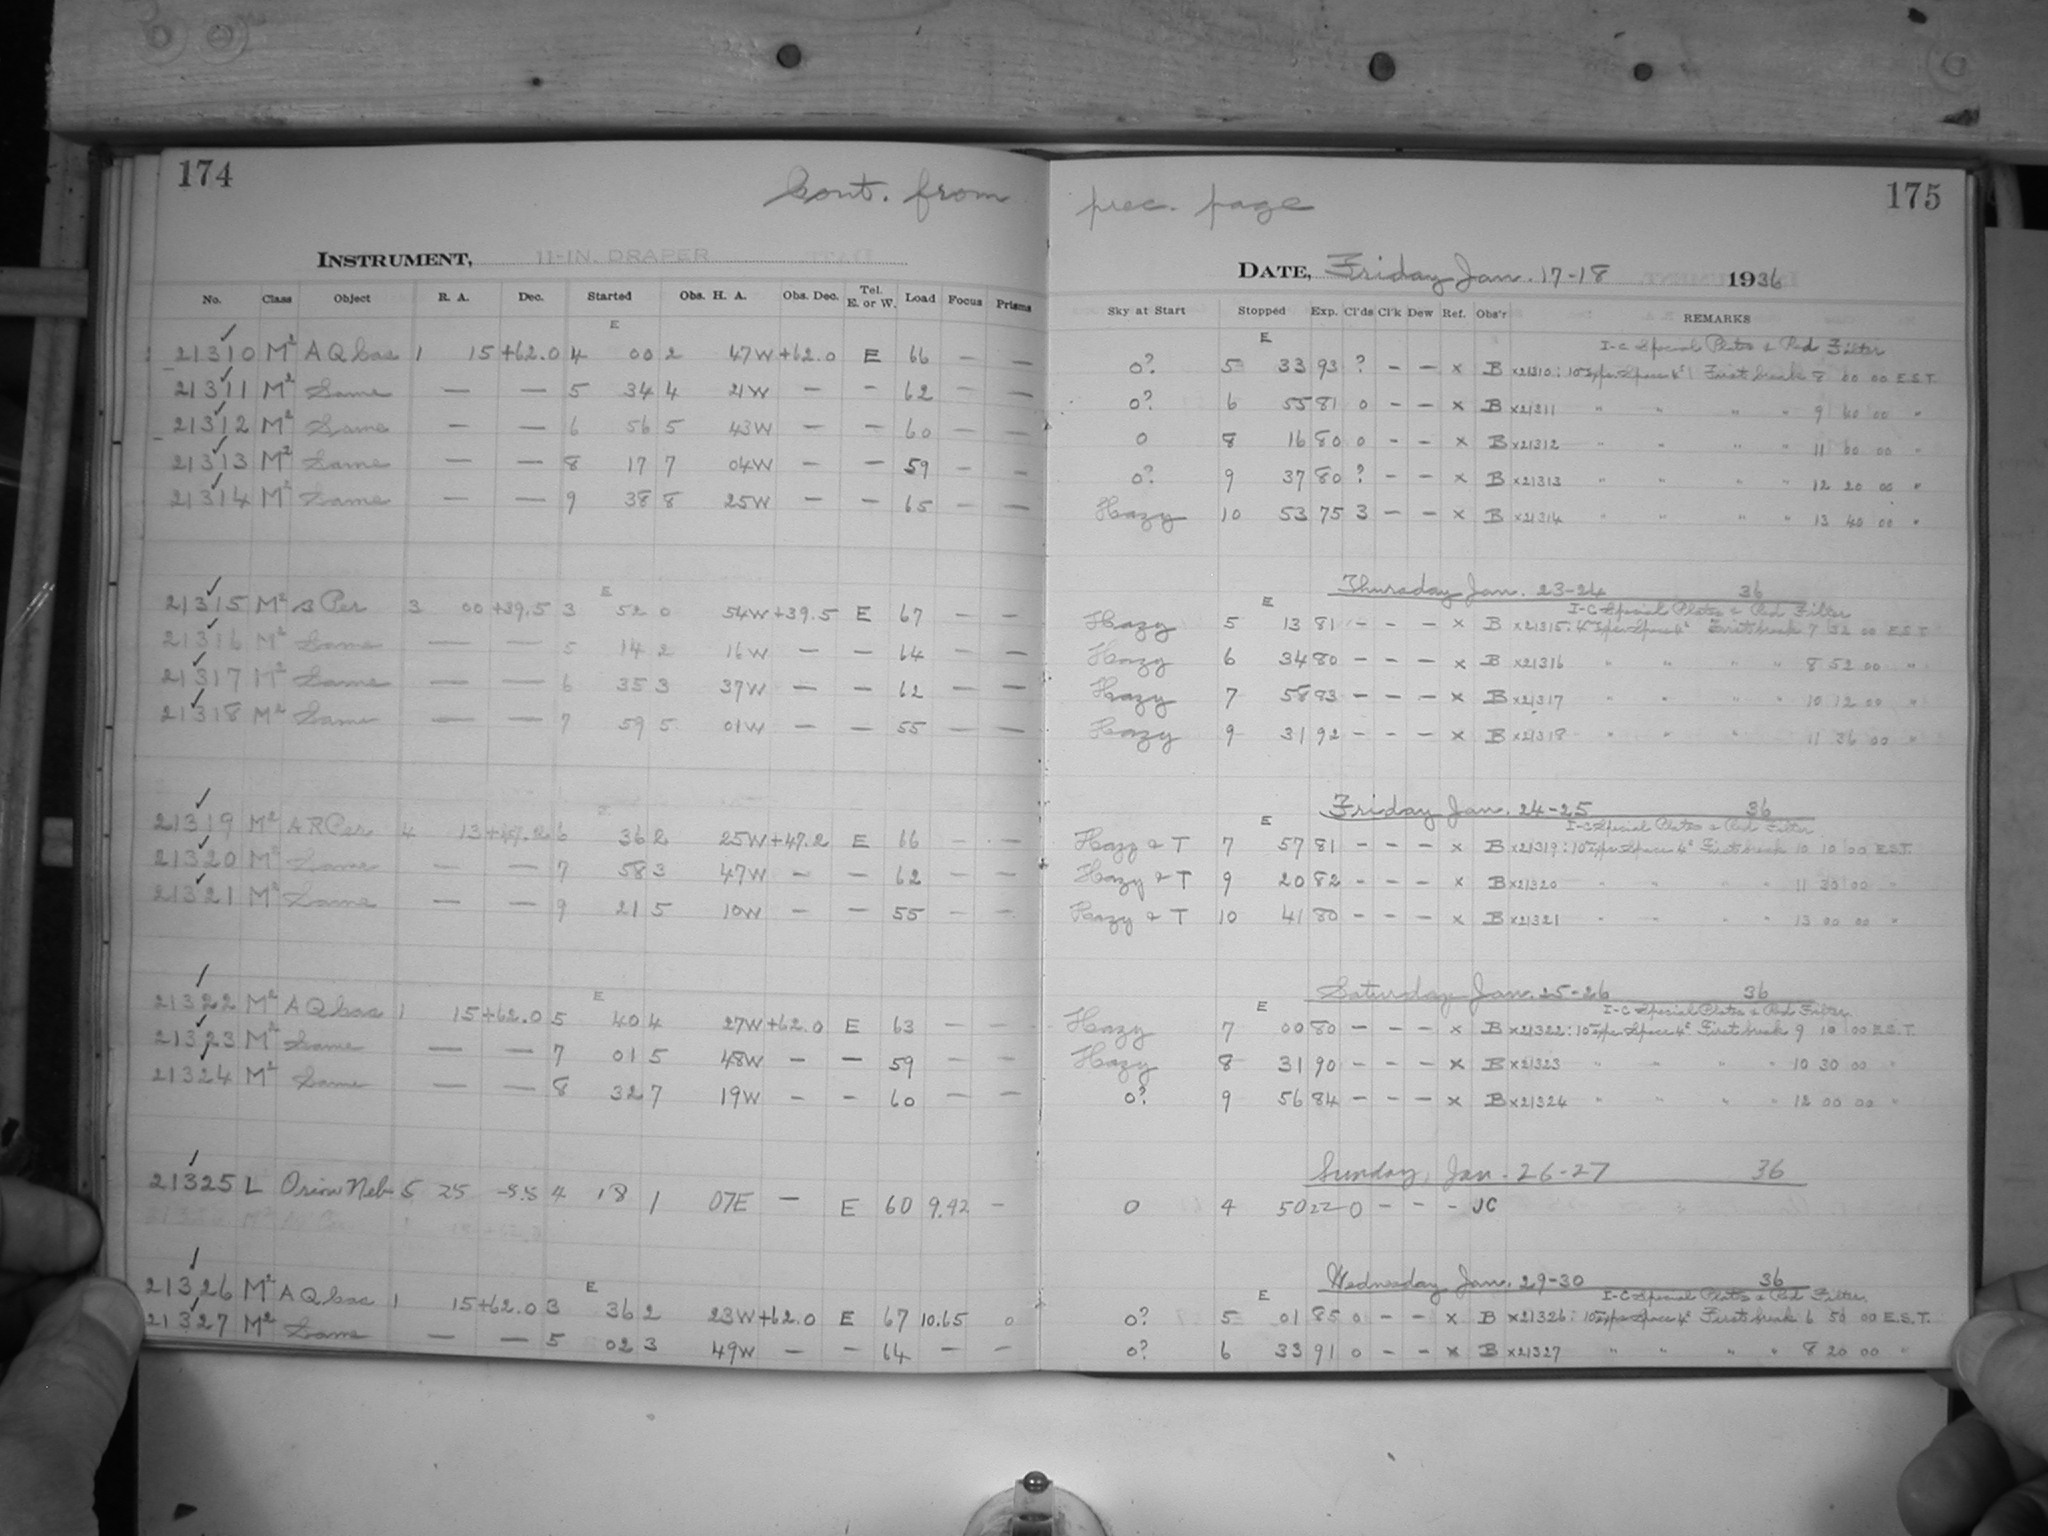 174
Cont. from
INSTRUMENT, 11-IN. DRAPER
No. Class Object R. A. Dec. Started Obs. H. A. Obs. Dec. Tel. E. or W. Load Focus Prisms
E
21310 M² A Q Cas 1 15 +62.0 4 00 2 47W +62.0 E 66 — —
21311 M² Same — — 5 34 4 21W — — 62 — —
21312 M² Same — — 6 56 5 43W — — 60 — —
21313 M² Same — — 8 17 7 04W — — 59 — —
21314 M² Same — — 9 38 8 25W — — 65 — —
E
21315 M² B Per 3 00 +39.5 3 52 0 54W +39.5 E 67 — —
21316 M² Same — — 5 14 2 16W — — 64 — —
21317 M² Same — — 6 35 3 37W — — 62 — —
21318 M² Same — — 7 59 5 01W — — 55 — —
E
21319 M² A R Per 4 13 +47.2 6 36 2 25W +47.2 E 66 — —
21320 M² Same — — 7 58 3 47W — — 62 — —
21321 M² Same — — 9 21 5 10W — — 55 — —
E
21322 M² A Q Cas 1 15 +62.0 5 40 4 27W +62.0 E 63 — —
21323 M² Same — — 7 01 5 48W — — 59 — —
21324 M² Same — — 8 32 7 19W — — 60 — —
21325 L Orion Neb 5 25 -5.5 4 18 1 07E — E 60 9.42 —
E
21326 M² A Q Cas 1 15 +62.0 3 36 2 23W +62.0 E 67 10.65 0
21327 M² Same — — 5 02 3 49W — — 64 — —
175
prec. page
DATE, Friday Jan. 17-18 1936
Sky at Start Stopped Exp. Cl'ds Cl'k Dew Ref. Obs'r REMARKS
E I-C Special Plates & Red Filter
0? 5 33 93 ? — — x B x21310: 10 Exps Space 4ˢ First break 8 00 00 E.S.T.
0? 6 55 81 0 — — x B x21311 " " " " 9 40 00 "
0 8 16 80 0 — — x B x21312 " " " " 11 00 00 "
0? 9 37 80 ? — — x B x21313 " " " " 12 20 00 "
Hazy 10 53 75 3 — — x B x21314 " " " " 13 40 00 "
Thursday Jan. 23-24 36
E I-C Special Plates & Red Filter
Hazy 5 13 81 — — — x B x21315: 4 Exps Space 4ˢ First break 7 32 00 E.S.T.
Hazy 6 34 80 — — — x B x21316 " " " " 8 52 00 "
Hazy 7 58 93 — — — x B x21317 " " " " 10 12 00 "
Hazy 9 31 92 — — — x B x21318 " " " " 11 36 00 "
Friday Jan. 24-25 36
E I-C Special Plates & Red Filter
Hazy & T 7 57 81 — — — x B x21319: 10 Exps Space 4ˢ First break 10 10 00 E.S.T.
Hazy & T 9 20 82 — — — x B x21320 " " " " 11 30 00 "
Hazy & T 10 41 80 — — — x B x21321 " " " " 13 00 00 "
Saturday Jan. 25-26 36
E I-C Special Plates & Red Filter
Hazy 7 00 80 — — — x B x21322: 10 Exps Space 4ˢ First break 9 10 00 E.S.T.
Hazy 8 31 90 — — — x B x21323 " " " " 10 30 00 "
0? 9 56 84 — — — x B x21324 " " " " 12 00 00 "
Sunday, Jan. 26-27 36
0 4 50 22 0 — — — JC
Wednesday Jan. 29-30 36
E I-C Special Plates & Red Filter
0? 5 01 85 0 — — x B x21326: 10 Exps Space 4ˢ First break 6 50 00 E.S.T.
0? 6 33 91 0 — — x B x21327 " " " " 8 20 00 "